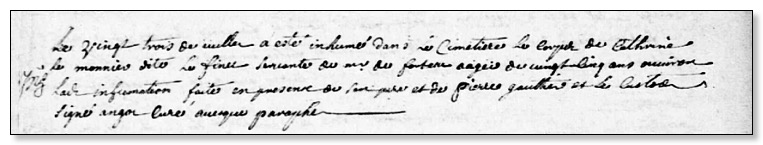 Le vingt trois de iuillet a esté inhumé dans le Cimetiere le corps de Cathrine
le monnier dite le finet servante de mr de aagée de vingt cinq ans environ
lad. inhumation faite en presence de son pere et de pierre gauthier et le custode
Signé angot curé avecque paraphe